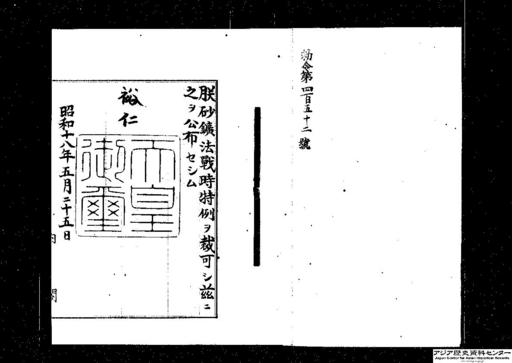 勅令第四百五十二號
朕砂鑛法戰時特例ヲ裁可シ茲ニ
之ヲ公布セシム
裕仁
天皇
御璽
昭和十八年五月二十五日
内閣
アジア歴史資料センター
Japan Center for Asian Historical Records